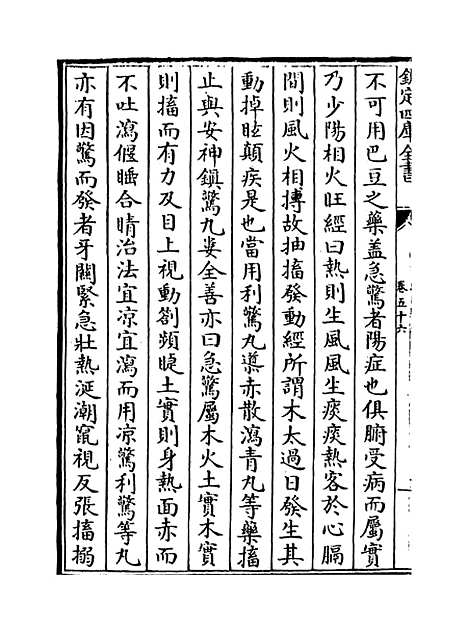 欽定四庫全書
卷五十六
不可用巴豆之藥盖急驚者陽症也俱腑受病而屬實
乃少陽相火旺經曰熱則生風風生痰痰熱客於心膈
間則風火相摶故抽搐發動經所謂木太過日發生其
動掉眩顛疾是也當用利驚丸導赤散瀉青丸等藥搐
止與安神鎮驚丸婁全善亦曰急驚屬木火土實木實
則搐而有力及目上視動劄頻睫土實則身熱面赤而
不吐瀉偃睡合睛治法宜凉宜瀉而用凉驚利驚等丸
亦有因驚而發者牙關緊急壯熱涎潮竄視反張搐搦